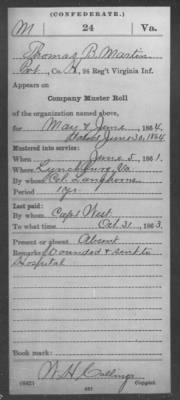 (CONFEDERATE.)
M 24 Va.
Thomas B. Martin
Pvt, Co. A, 24 Reg't Virginia Inf.
Appears on
Company Muster Roll
of the organization named above,
for May & June, 1864.
dated June 30, 1864
Mustered into service:
When June 5, 1861.
Where Lynchburg Va
By whom Col. Langhorne
Period 1 yr.
Last paid:
By whom Capt West
To what time Oct. 31, 1863
Present or absent Absent
Remarks: Wounded & sent to
Hospital
Book mark:
W. H.
(642) Copyist.